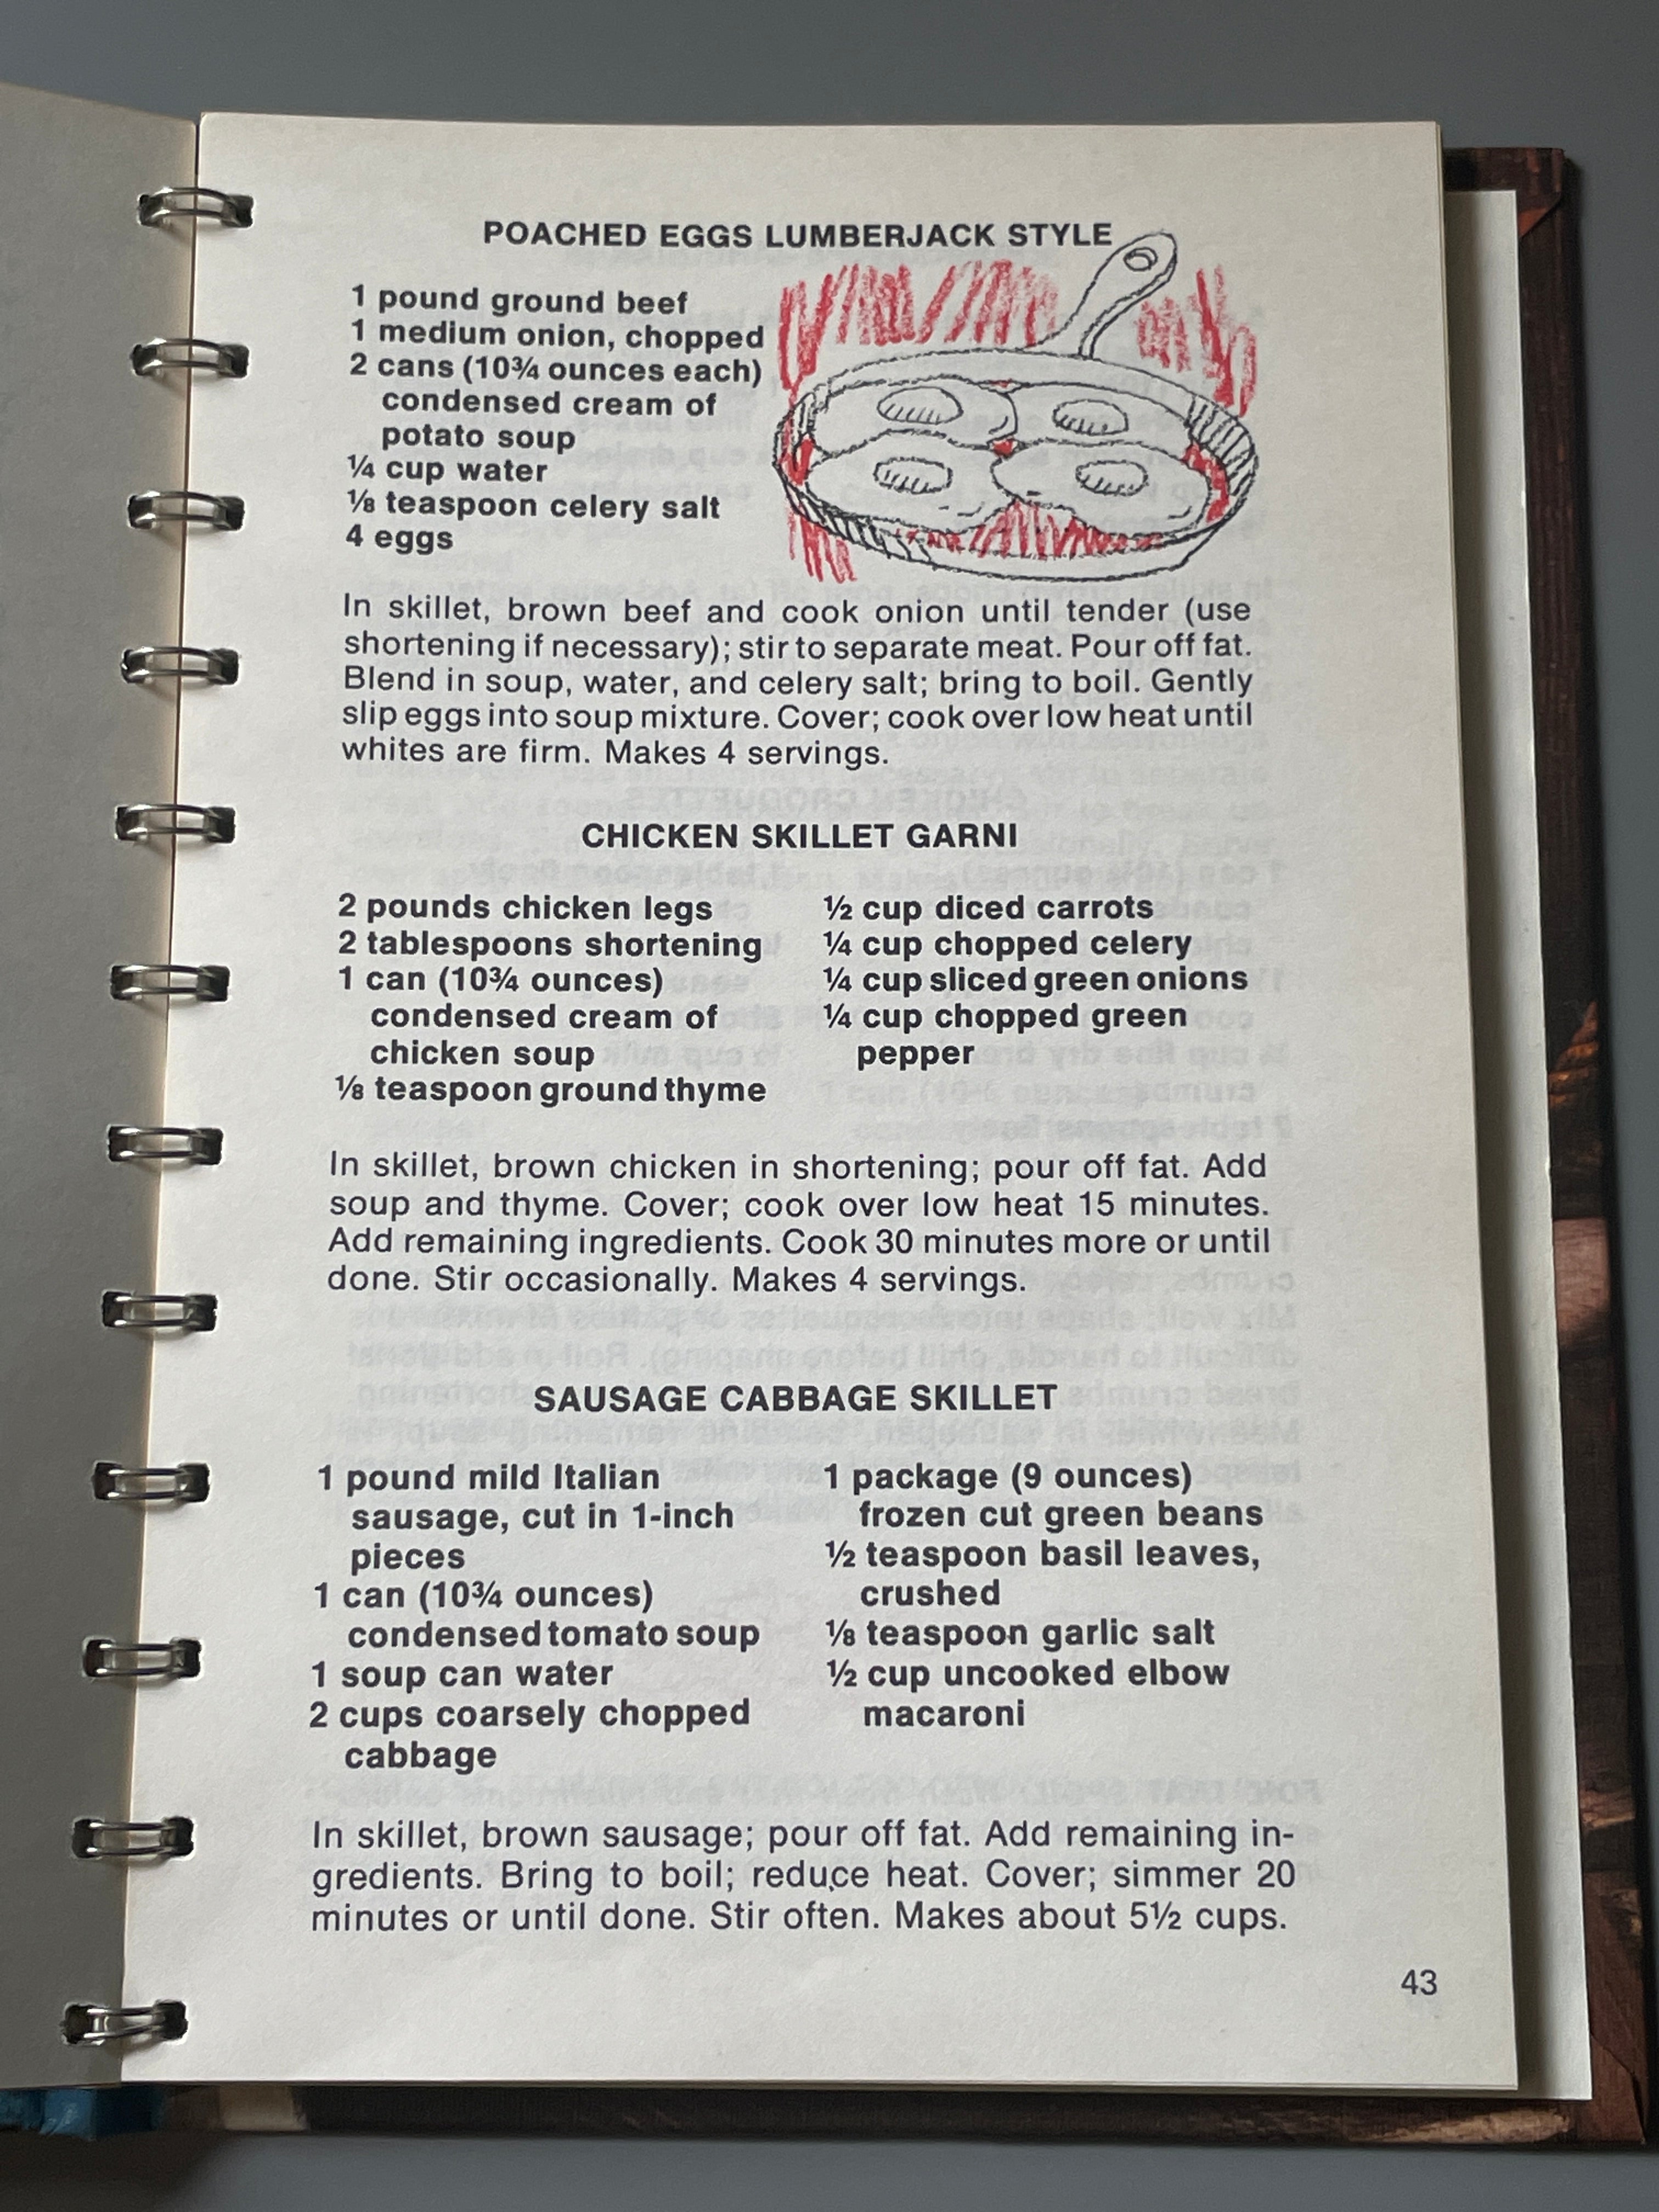 POACHED EGGS LUMBERJACK STYLE
1 pound ground beef
1 medium onion, chopped
2 cans (10¾ ounces each)
condensed cream of
potato soup
¼ cup water
⅛ teaspoon celery salt
4 eggs
In skillet, brown beef and cook onion until tender (use
shortening if necessary); stir to separate meat. Pour off fat.
Blend in soup, water, and celery salt; bring to boil. Gently
slip eggs into soup mixture. Cover; cook over low heat until
whites are firm. Makes 4 servings.
CHICKEN SKILLET GARNI
2 pounds chicken legs
2 tablespoons shortening
1 can (10¾ ounces)
condensed cream of
chicken soup
⅛ teaspoon ground thyme
½ cup diced carrots
¼ cup chopped celery
¼ cup sliced green onions
¼ cup chopped green
pepper
In skillet, brown chicken in shortening; pour off fat. Add
soup and thyme. Cover; cook over low heat 15 minutes.
Add remaining ingredients. Cook 30 minutes more or until
done. Stir occasionally. Makes 4 servings.
SAUSAGE CABBAGE SKILLET
1 pound mild Italian
sausage, cut in 1-inch
pieces
1 can (10¾ ounces)
condensed tomato soup
1 soup can water
2 cups coarsely chopped
cabbage
1 package (9 ounces)
frozen cut green beans
½ teaspoon basil leaves,
crushed
⅛ teaspoon garlic salt
½ cup uncooked elbow
macaroni
In skillet, brown sausage; pour off fat. Add remaining in-
gredients. Bring to boil; reduce heat. Cover; simmer 20
minutes or until done. Stir often. Makes about 5½ cups.
43